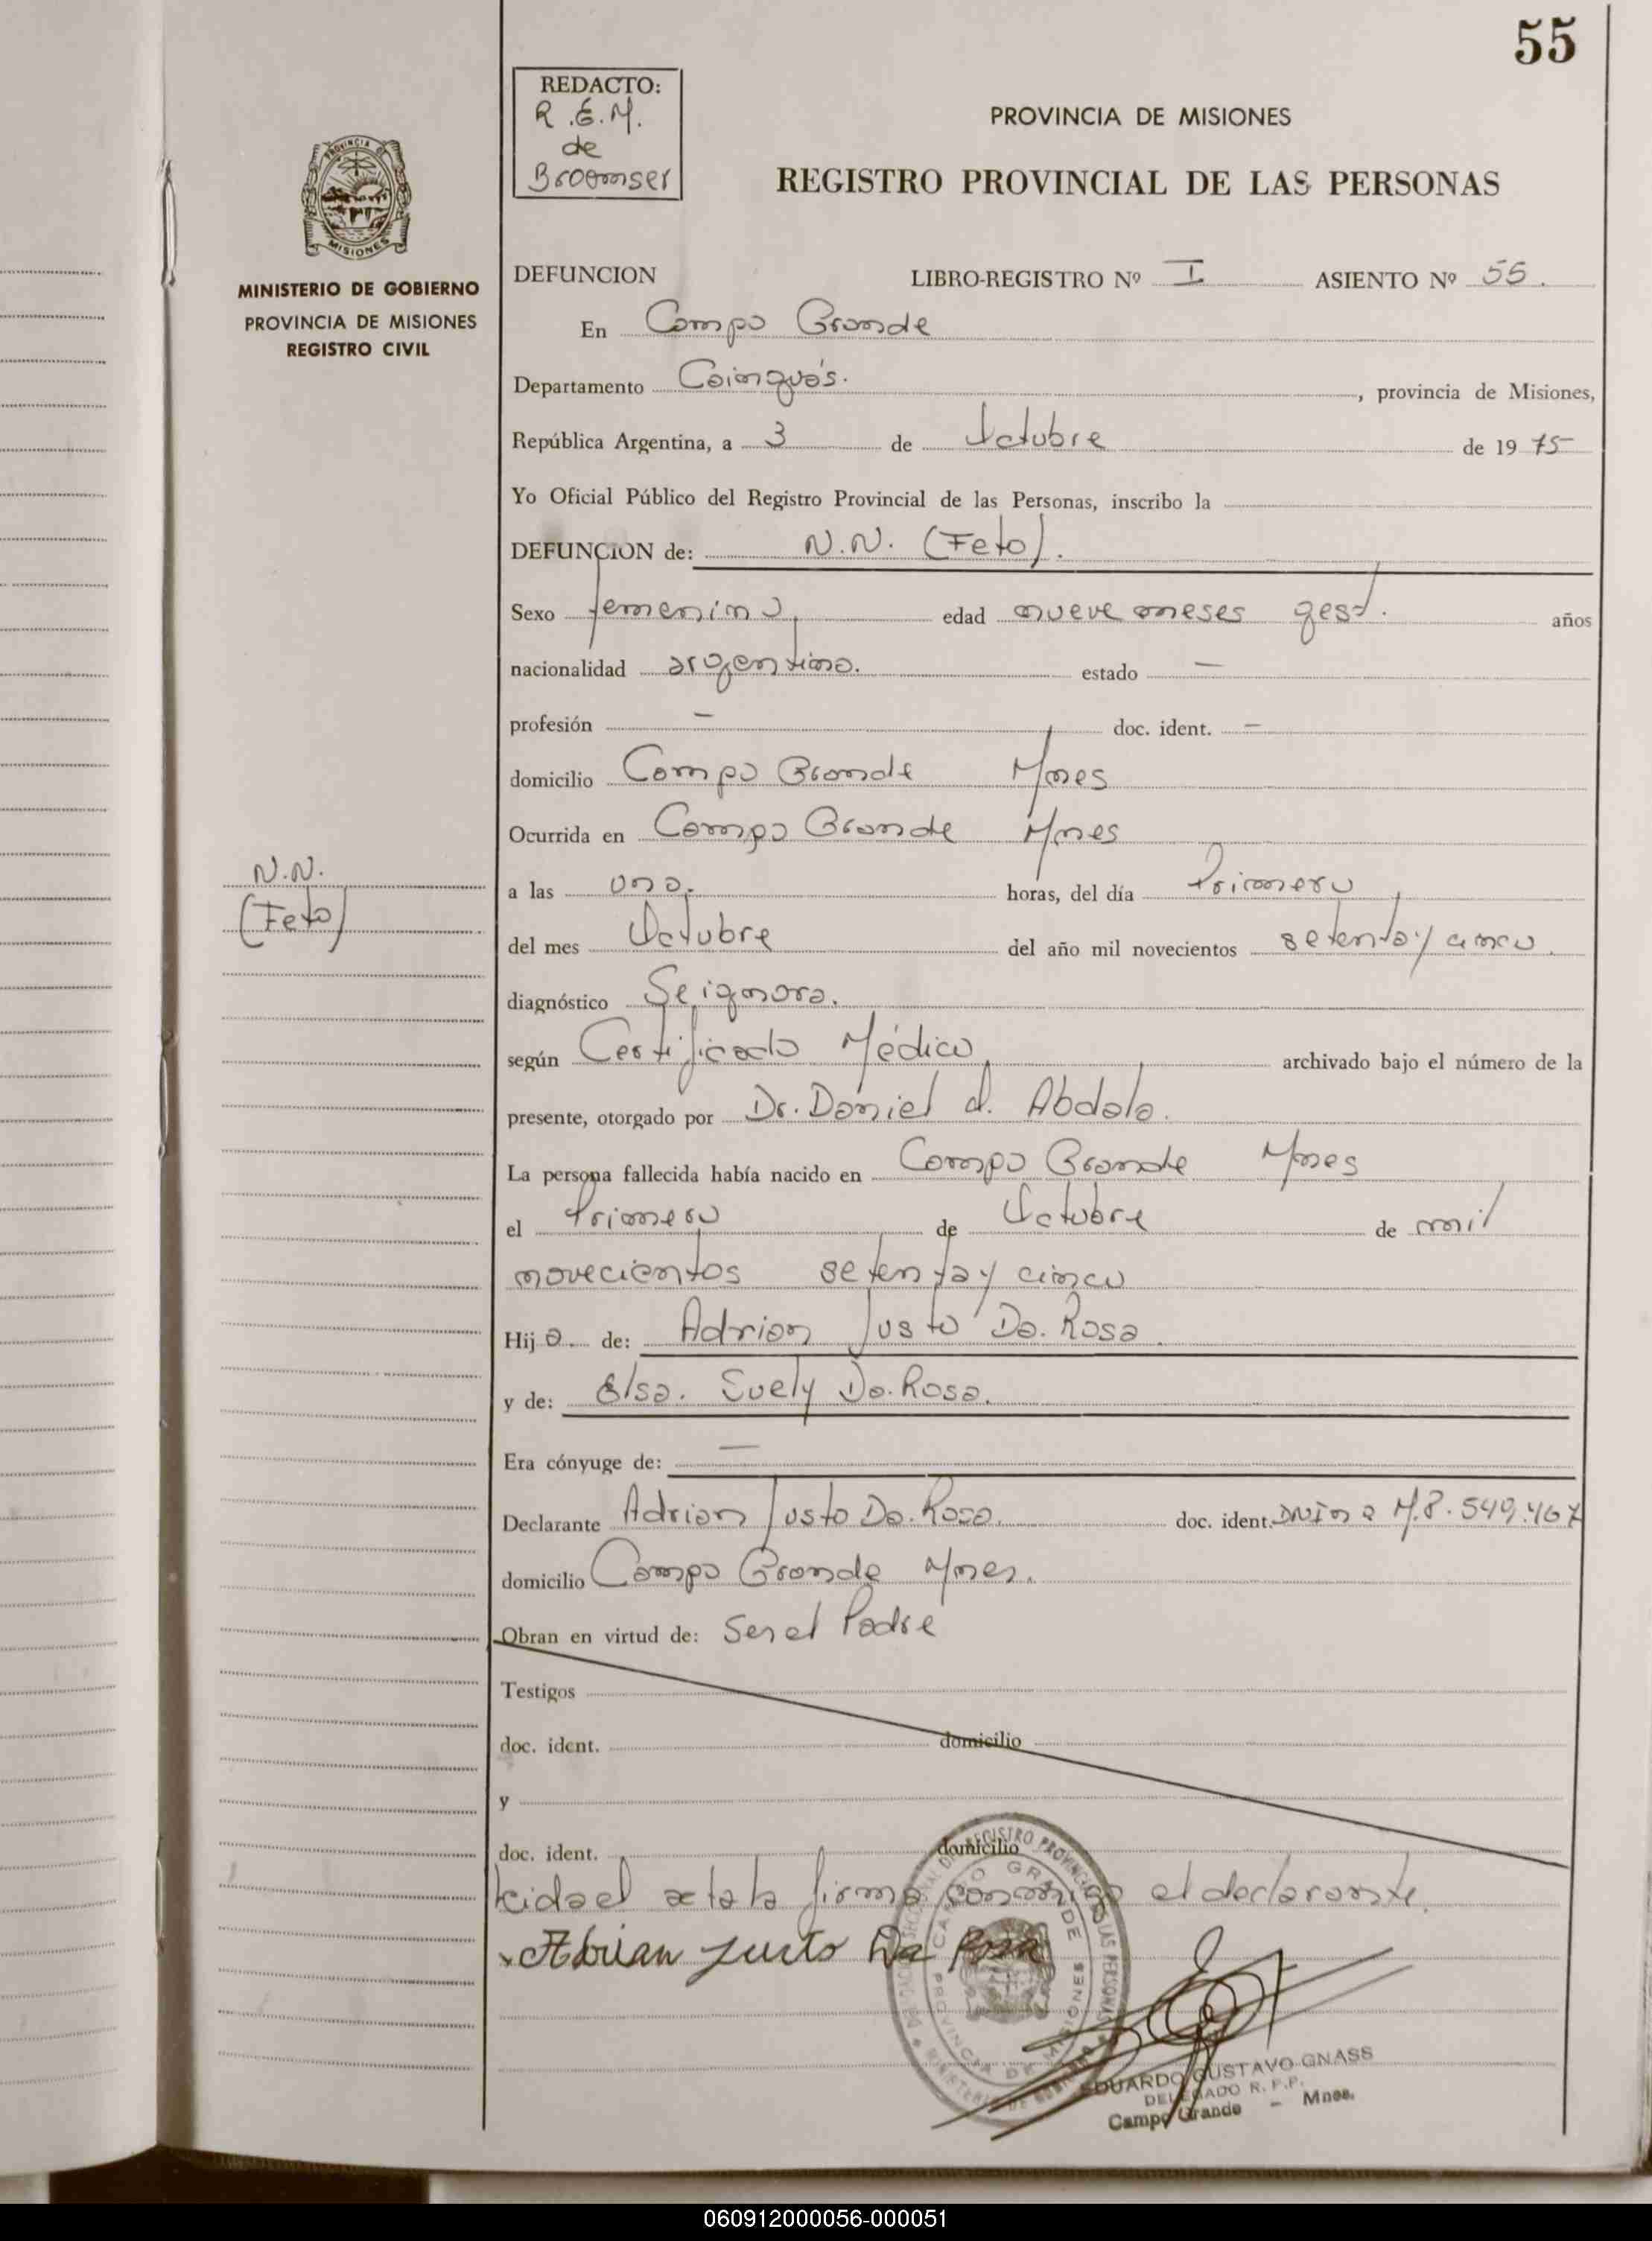 55
REDACTO:
R.E.M.
de
Broemser
PROVINCIA DE MISIONES
REGISTRO PROVINCIAL DE LAS PERSONAS
PROVINCIA DE
MISIONES
MINISTERIO DE GOBIERNO
PROVINCIA DE MISIONES
REGISTRO CIVIL
DEFUNCION LIBRO-REGISTRO Nº I ASIENTO Nº 55.
En Campo Grande
Departamento Cainguás. , provincia de Misiones,
República Argentina, a 3 de Octubre de 19 75
Yo Oficial Público del Registro Provincial de las Personas, inscribo la
DEFUNCION de: N.N. (Feto).
Sexo femenino, edad nueve meses gest. años
nacionalidad argentina. estado —
profesión — doc. ident. —
domicilio Campo Grande Mnes
Ocurrida en Campo Grande Mnes
a las una. horas, del día Primero
del mes Octubre del año mil novecientos setenta y cinco.
diagnóstico Se ignora.
según Certificado Médico, archivado bajo el número de la
presente, otorgado por Dr. Daniel A. Abdala.
La persona fallecida había nacido en Campo Grande Mnes
el Primero de Octubre de mil
novecientos setenta y cinco
Hij a de: Adrian Justo Da. Rosa.
y de: Elsa. Suely Da. Rosa.
Era cónyuge de: —
Declarante Adrian Justo Da. Rosa. doc. ident. DNI nº M.8.549.467
domicilio Campo Grande Mnes.
Obran en virtud de: Ser el Padre
Testigos
doc. ident. domicilio
y
doc. ident. domicilio
Leida el acta la firma conmigo el declarante.
Adrian Justo Da Rosa
N.N.
(Feto)
CAMPO GRANDE
PROVINCIA DE MISIONES
EDUARDO GUSTAVO GNASS
DELEGADO R. P. P.
Campo Grande - Mnes.
060912000056-000051